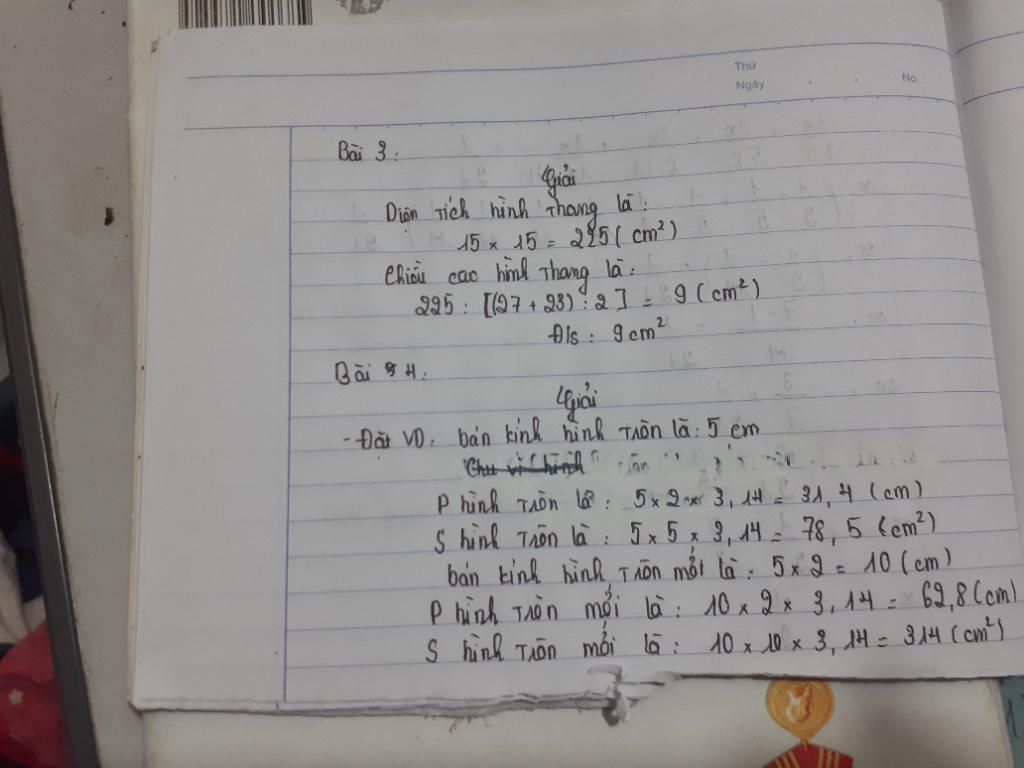 Thứ
Ngày . . No.
Bài 3:
Giải
Diện tích hình thang là:
15 × 15 = 225 (cm²)
Chiều cao hình thang là:
225 : [(27 + 23) : 2] = 9 (cm²)
Đ/s : 9 cm²
Bài 4:
Giải
- Đặt VD: bán kính hình tròn là: 5 cm
Chu vi hình
P hình tròn là : 5 × 2 × 3,14 = 31,4 (cm)
S hình tròn là : 5 × 5 × 3,14 = 78,5 (cm²)
bán kính hình tròn mới là : 5 × 2 = 10 (cm)
P hình tròn mới là : 10 × 2 × 3,14 = 62,8 (cm)
S hình tròn mới là : 10 × 10 × 3,14 = 314 (cm²)